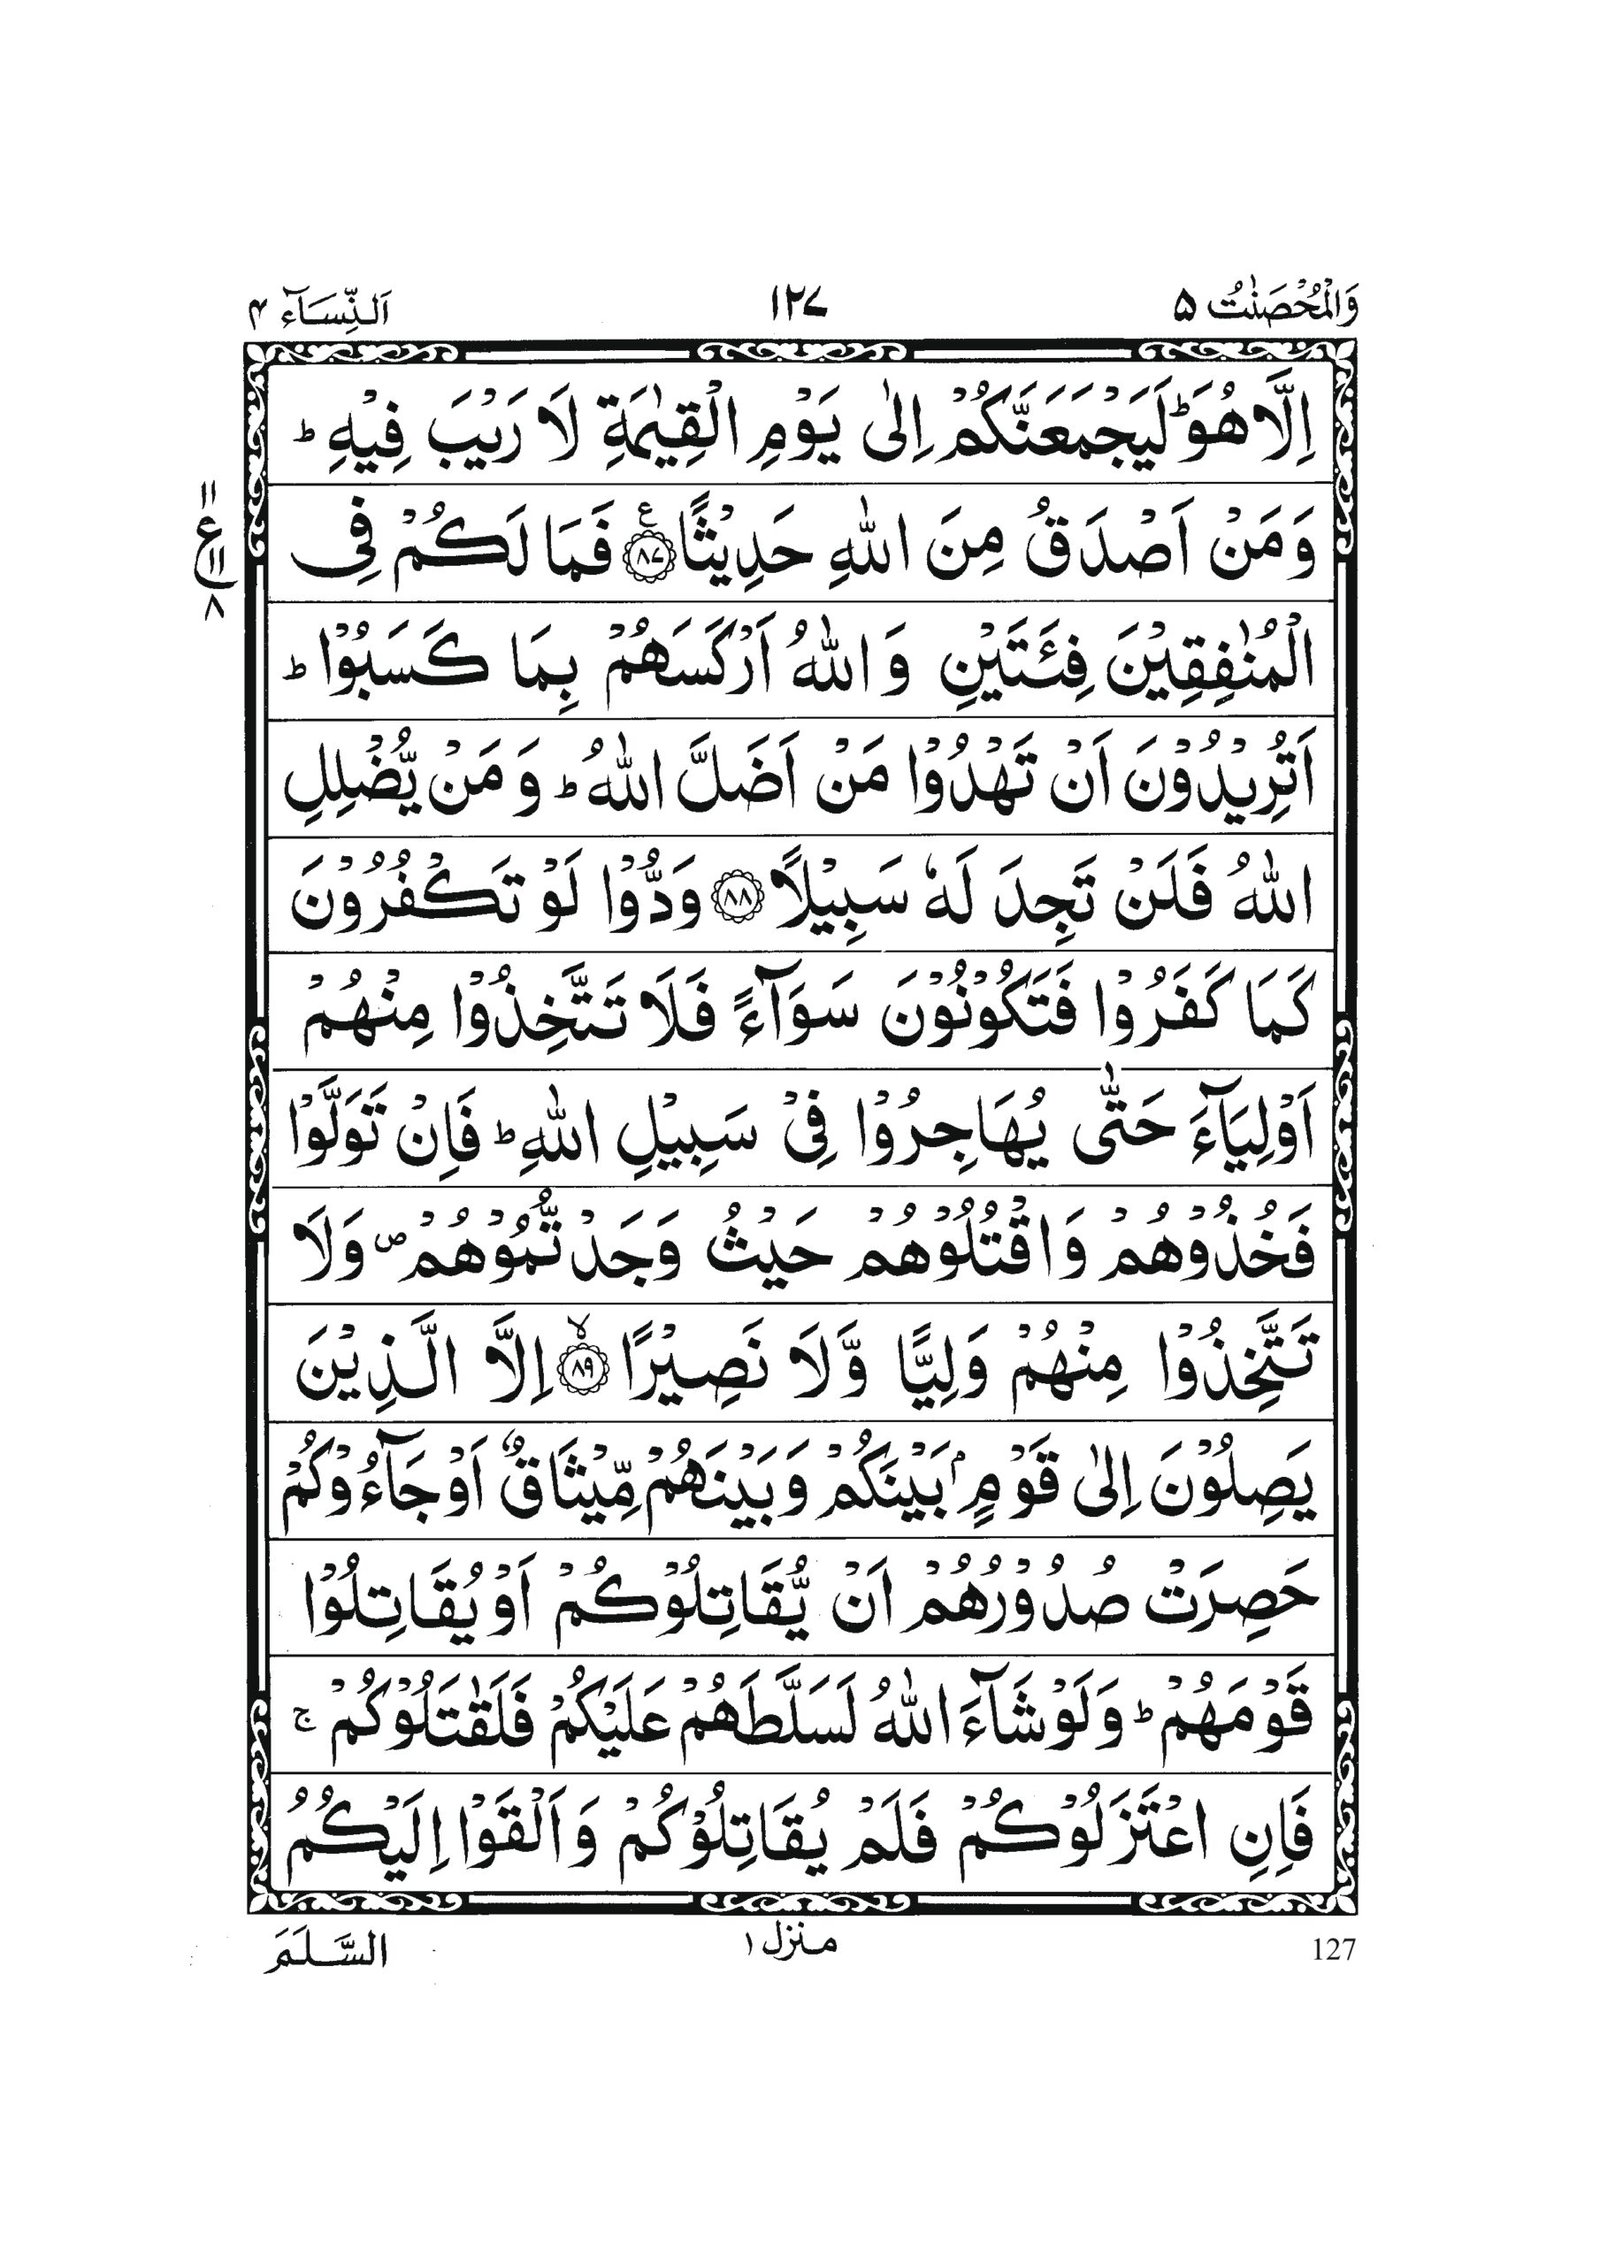 وَالْمُحْصَنٰتُ ۵ ۱۲۷ اَلنِّسَآء ۴
اِلَّا هُوَ ؕ لَيَجْمَعَنَّكُمْ اِلٰى يَوْمِ الْقِيٰمَةِ لَا رَيْبَ فِيْهِ ؕ
وَمَنْ اَصْدَقُ مِنَ اللّٰهِ حَدِيْثًا ۧ ﴿۸۷﴾ فَمَا لَكُمْ فِى
الْمُنٰفِقِيْنَ فِئَتَيْنِ وَاللّٰهُ اَرْكَسَهُمْ بِمَا كَسَبُوْا ؕ
اَتُرِيْدُوْنَ اَنْ تَهْدُوْا مَنْ اَضَلَّ اللّٰهُ ؕ وَمَنْ يُّضْلِلِ
اللّٰهُ فَلَنْ تَجِدَ لَهٗ سَبِيْلًا ﴿۸۸﴾ وَدُّوْا لَوْ تَكْفُرُوْنَ
كَمَا كَفَرُوْا فَتَكُوْنُوْنَ سَوَآءً فَلَا تَتَّخِذُوْا مِنْهُمْ
اَوْلِيَآءَ حَتّٰى يُهَاجِرُوْا فِىْ سَبِيْلِ اللّٰهِ ؕ فَاِنْ تَوَلَّوْا
فَخُذُوْهُمْ وَاقْتُلُوْهُمْ حَيْثُ وَجَدْتُّمُوْهُمْ ص وَلَا
تَتَّخِذُوْا مِنْهُمْ وَلِيًّا وَّلَا نَصِيْرًا ۙ ﴿۸۹﴾ اِلَّا الَّذِيْنَ
يَصِلُوْنَ اِلٰى قَوْمٍۭ بَيْنَكُمْ وَبَيْنَهُمْ مِّيْثَاقٌ اَوْ جَآءُوْكُمْ
حَصِرَتْ صُدُوْرُهُمْ اَنْ يُّقَاتِلُوْكُمْ اَوْ يُقَاتِلُوْا
قَوْمَهُمْ ؕ وَلَوْ شَآءَ اللّٰهُ لَسَلَّطَهُمْ عَلَيْكُمْ فَلَقٰتَلُوْكُمْ ۚ
فَاِنِ اعْتَزَلُوْكُمْ فَلَمْ يُقَاتِلُوْكُمْ وَاَلْقَوْا اِلَيْكُمُ
۱۱
ع
۱۱
۸
127 منزل ۱ السَّلَمَ